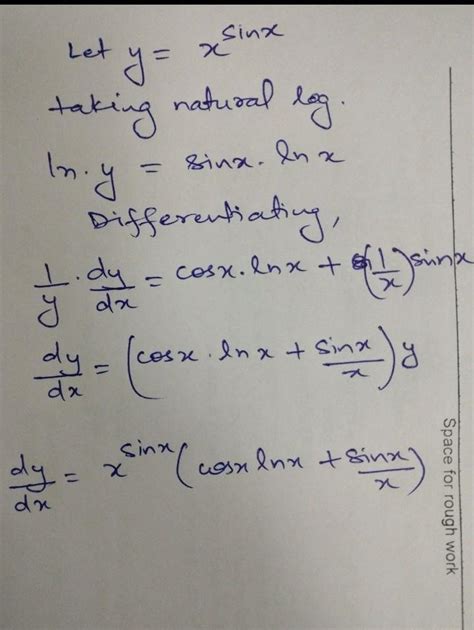 Let y = x^sinx
taking natural log.
ln.y = sinx. ln x
Differentiating,
1/y . dy/dx = cosx. lnx + (1/x) sinx
dy/dx = (cosx . ln x + sinx/x) y
dy/dx = x^sinx (cosx lnx + sinx/x)
Space for rough work